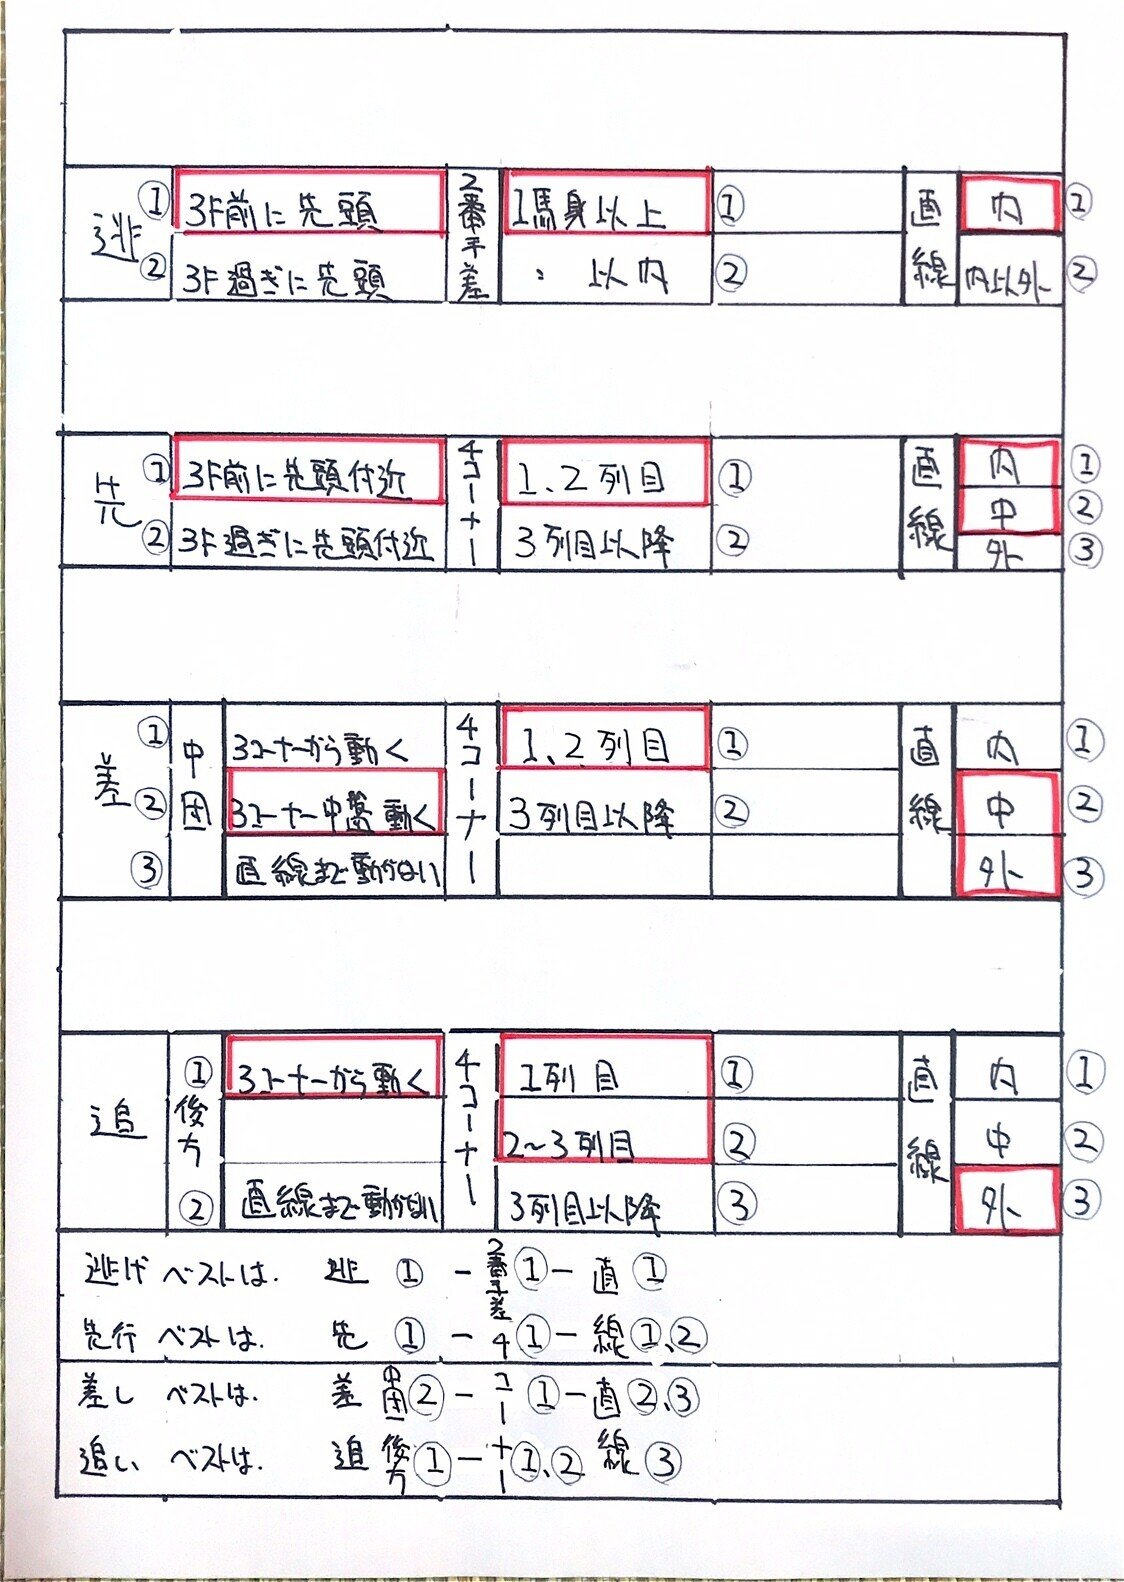 逃 ① 3F前に先頭 2番手差 1馬身以上 ① 直線 内 ①
② 3F過ぎに先頭 : 以内 ② 内以外 ②
先 ① 3F前に先頭付近 4コーナー 1、2列目 ① 直線 内 ①
中 ②
② 3F過ぎに先頭付近 3列目以降 ② 外 ③
差 ① 中団 3コーナーから動く 4コーナー 1、2列目 ① 直線 内 ①
② 3コーナー中盤動く 3列目以降 ② 中 ②
③ 直線まで動かない 外 ③
追 ① 後方 3コーナーから動く 4コーナー 1列目 ① 直線 内 ①
2〜3列目 ② 中 ②
② 直線まで動かない 3列目以降 ③ 外 ③
逃げ ベストは. 逃 ① - 2番手差 ① - 直 ①
先行 ベストは. 先 ① - 4 ① - 線 ①、②
差し ベストは. 差 中団 ② - コー ① - 直 ②、③
追い ベストは. 追 後方 ① - ナー ①、② 線 ③